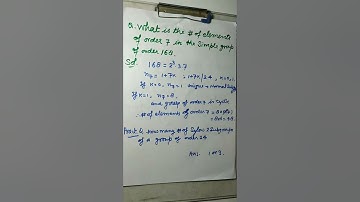 Q. What is the # of elements
of order 7 in the Simple group
of order 168.
Sol. 168 = 2³.3.7
n₇ = 1+7K , 1+7K / 24 , K=0,1
If K=0, n₇=1 unique & Normal
If K=1, n₇ = 8.
and group of order 7 is Cyclic
∴ # of elements of order 7 =
= 8×6 = 48
Pract. Q. how many # of Sylow 2 Subgroups
of a group of order 24
Ans. 1 or 3.